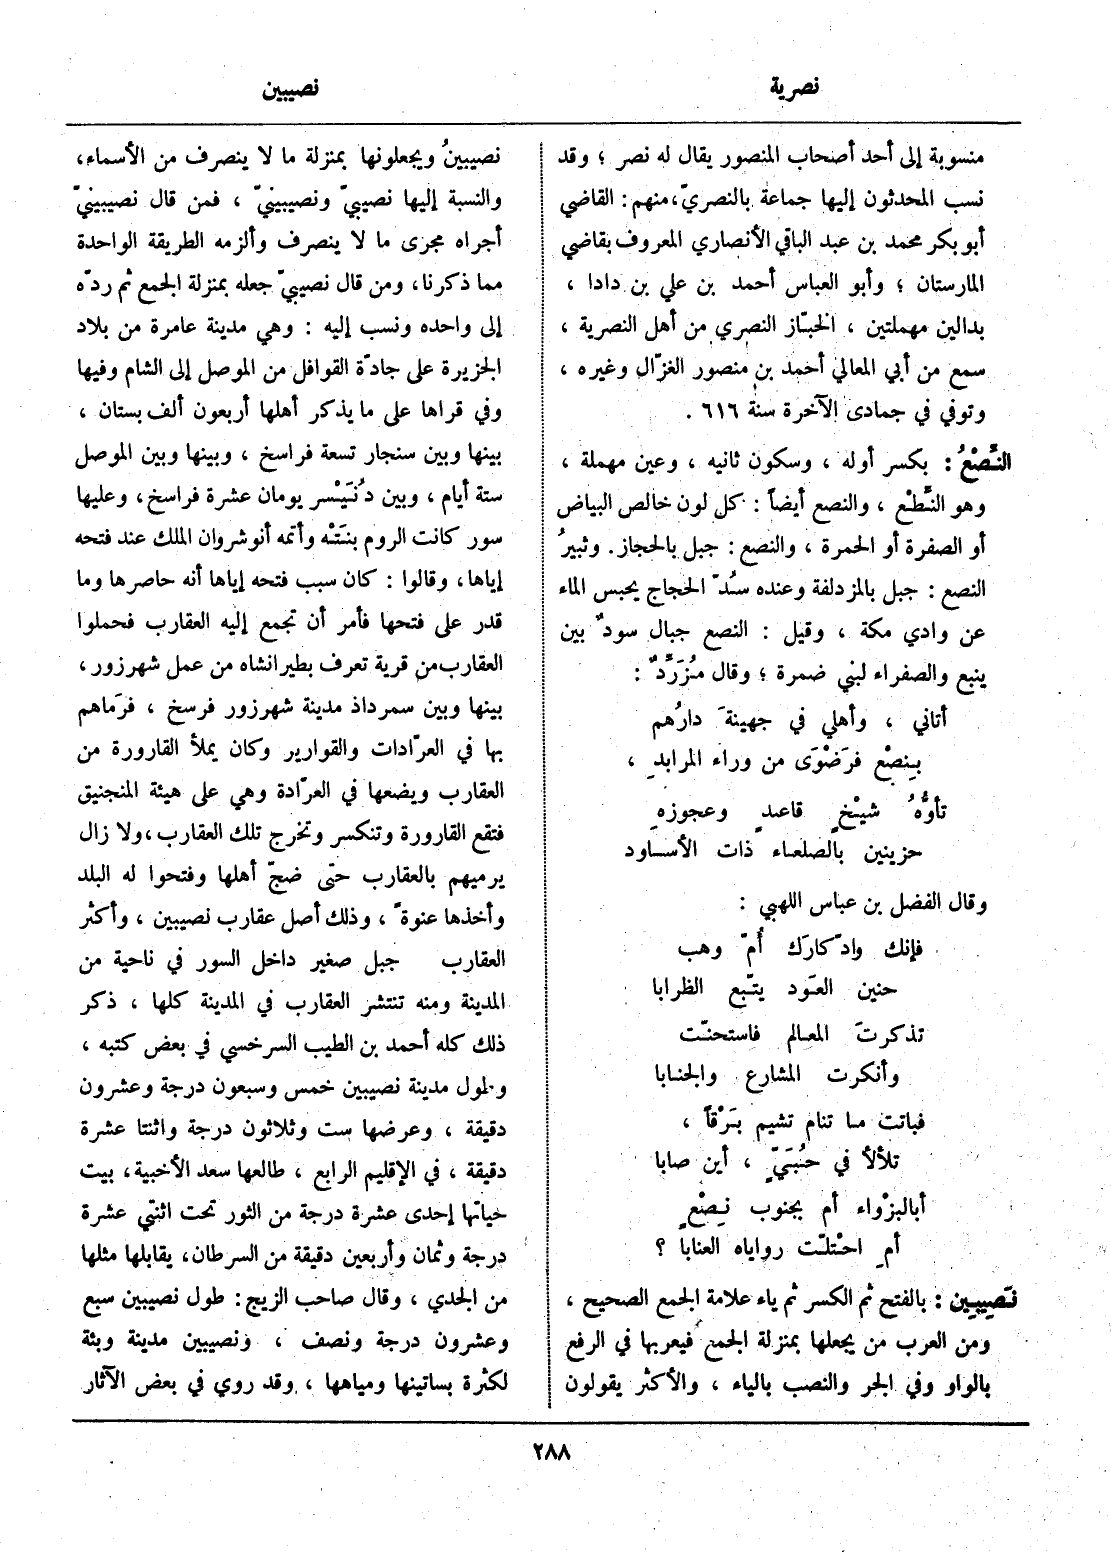 نصرية
نصيبين
منسوبة إلى أحد أصحاب المنصور يقال له نصر ؛ وقد
نسب المحدثون إليها جماعة بالنصريّ، منهم : القاضي
أبو بكر محمد بن عبد الباقي الأنصاري المعروف بقاضي
المارستان ؛ وأبو العباس أحمد بن علي بن دادا ،
بدالين مهملتين ، الخبّاز النصري من أهل النصرية ،
سمع من أبي المعالي أحمد بن منصور الغزّال وغيره ،
وتوفي في جمادى الآخرة سنة ٦١٦ .
النِّصْعُ : بكسر أوله ، وسكون ثانيه ، وعين مهملة ،
وهو النِّطْع ، والنصع أيضاً : كل لون خالص البياض
أو الصفرة أو الحمرة ، والنصع : جبل بالحجاز . وثبيرُ
النصع : جبل بالمزدلفة وعنده سُدّ الحجاج يحبس الماء
عن وادي مكة ، وقيل : النصع جبال سودٌ بين
ينبع والصفراء لبني ضمرة ؛ وقال مُزَرِّدٌ :
أتاني ، وأهلي في جهينةَ دارُهم
بِنِصْعِ فرَضْوَى من وراء المرابدِ ،
تأوُّهُ شيْخٍ قاعدٍ وعجوزهِ
حزينين بالصلعاء ذات الأساود
وقال الفضل بن عباس اللهبي :
فإنك وادّكارَك أُمّ وهب
حنين العَود يتّبع الظرابا
تذكرتَ المعالم فاستحنّت
وأنكرت المشارع والجنابا
فباتت ما تنام تشيم بَرْقاً ،
تلألأ في حُبَيٍّ ، أين صابا
أبالبزْواء أم بجنوب نِصْعٍ
أمِ احْتلّت رواياه العنابا ؟
نَصِيبِين : بالفتح ثم الكسر ثم ياء علامة الجمع الصحيح ،
ومن العرب من يجعلها بمنزلة الجمع فيعربها في الرفع
بالواو وفي الجر والنصب بالياء ، والأكثر يقولون
نصيبينُ ويجعلونها بمنزلة ما لا ينصرف من الأسماء ،
والنسبة إليها نصيبيّ ونصيبينيّ ، فمن قال نصيبينيّ
أجراه مجرى ما لا ينصرف وألزمه الطريقة الواحدة
مما ذكرنا ، ومن قال نصيبيّ جعله بمنزلة الجمع ثم ردّه
إلى واحده ونسب إليه : وهي مدينة عامرة من بلاد
الجزيرة على جادّة القوافل من الموصل إلى الشام وفيها
وفي قراها على ما يذكر أهلها أربعون ألف بستان ،
بينها وبين سنجار تسعة فراسخ ، وبينها وبين الموصل
ستة أيام ، وبين دُنَيْسر يومان عشرة فراسخ ، وعليها
سور كانت الروم بنَتْه وأتمه أنوشروان الملك عند فتحه
إياها ، وقالوا : كان سبب فتحه إياها أنه حاصرها وما
قدر على فتحها فأمر أن تجمع إليه العقارب فحملوا
العقارب من قرية تعرف بطيرانشاه من عمل شهرزور ،
بينها وبين سمرداذ مدينة شهرزور فرسخ ، فرَماهم
بها في العرّادات والقوارير وكان يملأ القارورة من
العقارب ويضعها في العرّادة وهي على هيئة المنجنيق
فتقع القارورة وتنكسر وتخرج تلك العقارب ، ولا زال
يرميهم بالعقارب حتى ضجّ أهلها وفتحوا له البلد
وأخذها عنوةً ، وذلك أصل عقارب نصيبين ، وأكثر
العقارب جبل صغير داخل السور في ناحية من
المدينة ومنه تنتشر العقارب في المدينة كلها ، ذكر
ذلك كله أحمد بن الطيب السرخسي في بعض كتبه ،
وطول مدينة نصيبين خمس وسبعون درجة وعشرون
دقيقة ، وعرضها ست وثلاثون درجة واثنتا عشرة
دقيقة ، في الإقليم الرابع ، طالعها سعد الأخبية ، بيت
حياتها إحدى عشرة درجة من الثور تحت اثنتي عشرة
درجة وثمان وأربعين دقيقة من السرطان ، يقابلها مثلها
من الجدي ، وقال صاحب الزيج : طول نصيبين سبع
وعشرون درجة ونصف ، ونصيبين مدينة وبئة
لكثرة بساتينها ومياهها ، وقد روي في بعض الآثار
٢٨٨